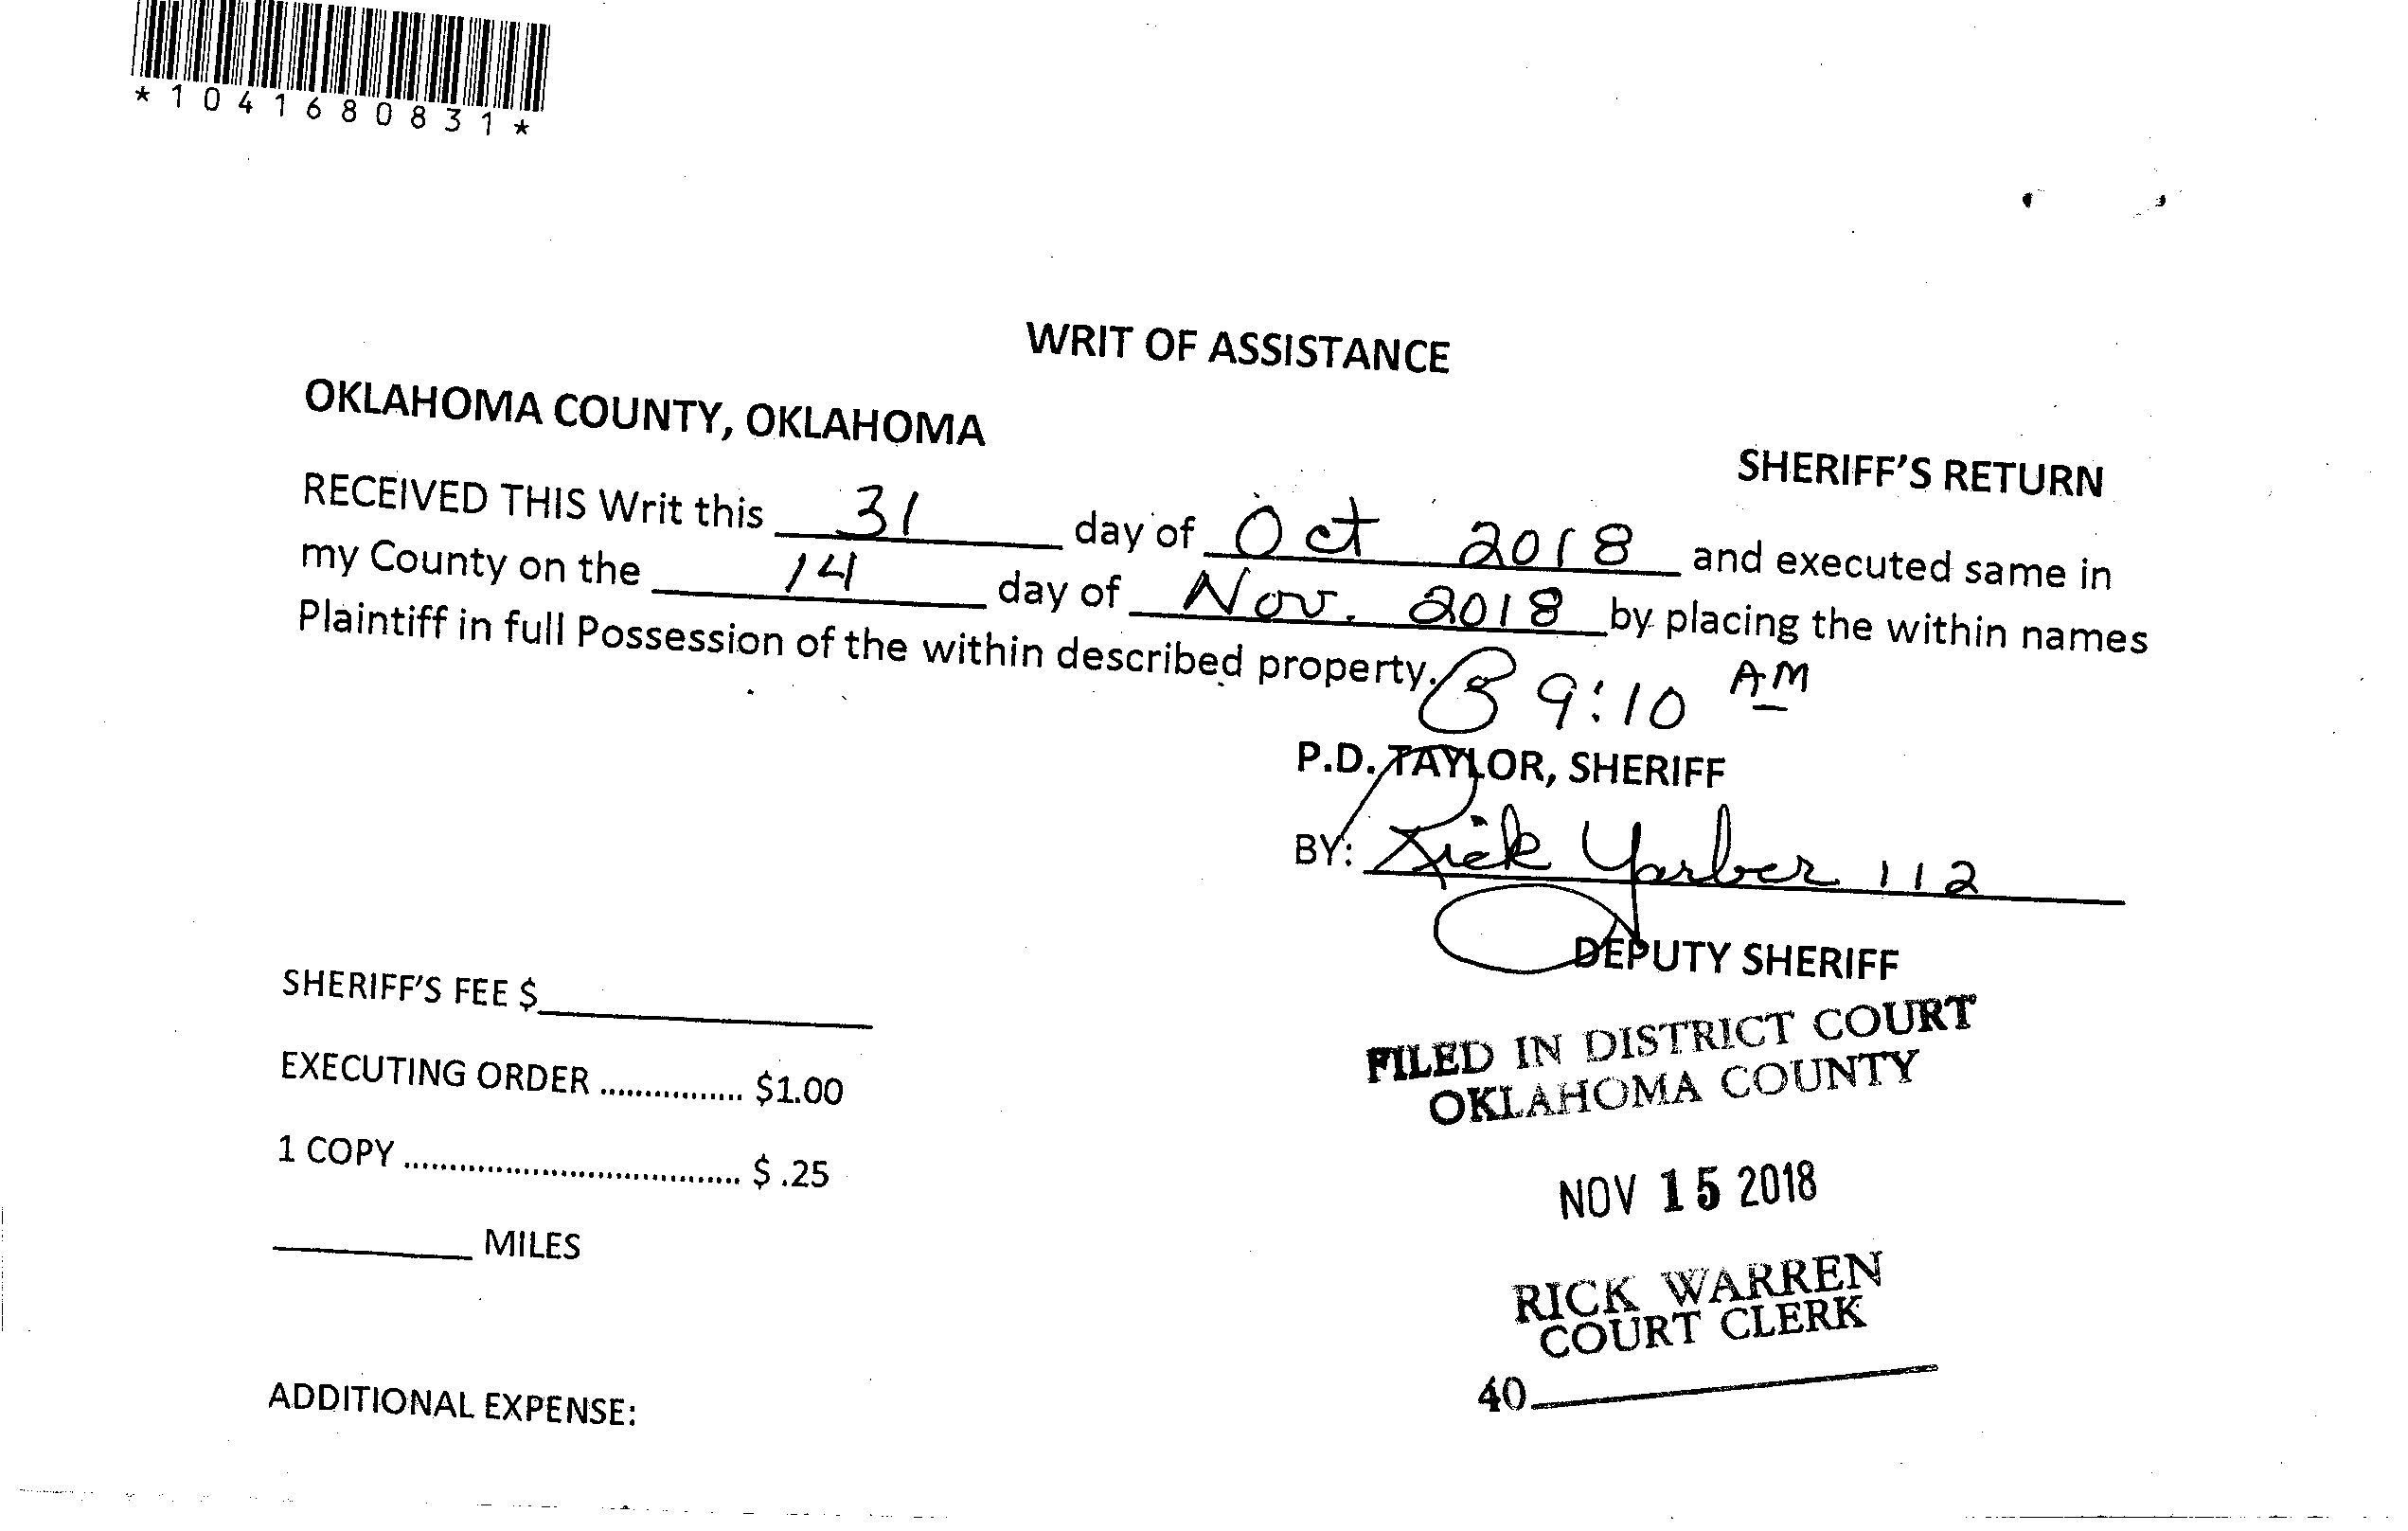 *1041680831*
WRIT OF ASSISTANCE
OKLAHOMA COUNTY, OKLAHOMA
SHERIFF'S RETURN
RECEIVED THIS Writ this 31 day of Oct 2018 and executed same in
my County on the 14 day of Nov. 2018 by placing the within names
Plaintiff in full Possession of the within described property. @ 9:10 AM
P.D. TAYLOR, SHERIFF
BY: Rick Yarber 112
DEPUTY SHERIFF
SHERIFF'S FEE $
EXECUTING ORDER ................ $1.00
1 COPY ..................................... $ .25
MILES
ADDITIONAL EXPENSE:
FILED IN DISTRICT COURT
OKLAHOMA COUNTY
NOV 15 2018
RICK WARREN
COURT CLERK
40